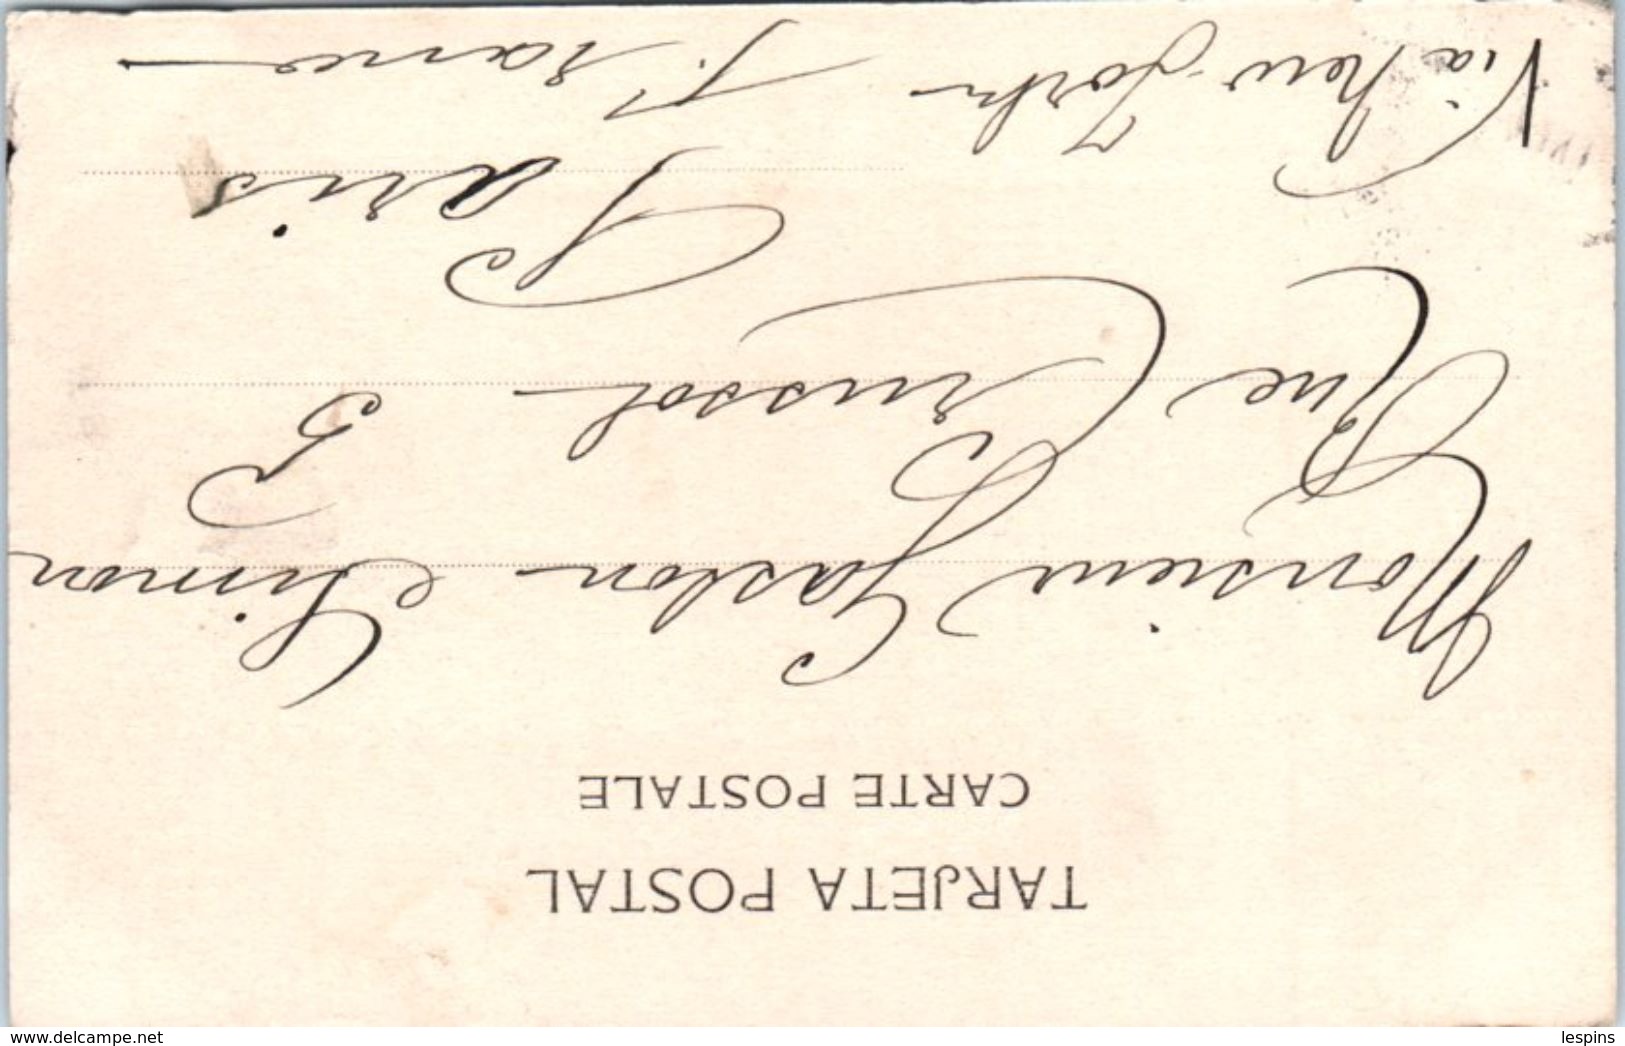 TARJETA POSTAL
CARTE POSTALE
Monsieur Gaston Simon
Rue Crussol 3
Paris
Via New-York France
www.delcampe.net
lespins